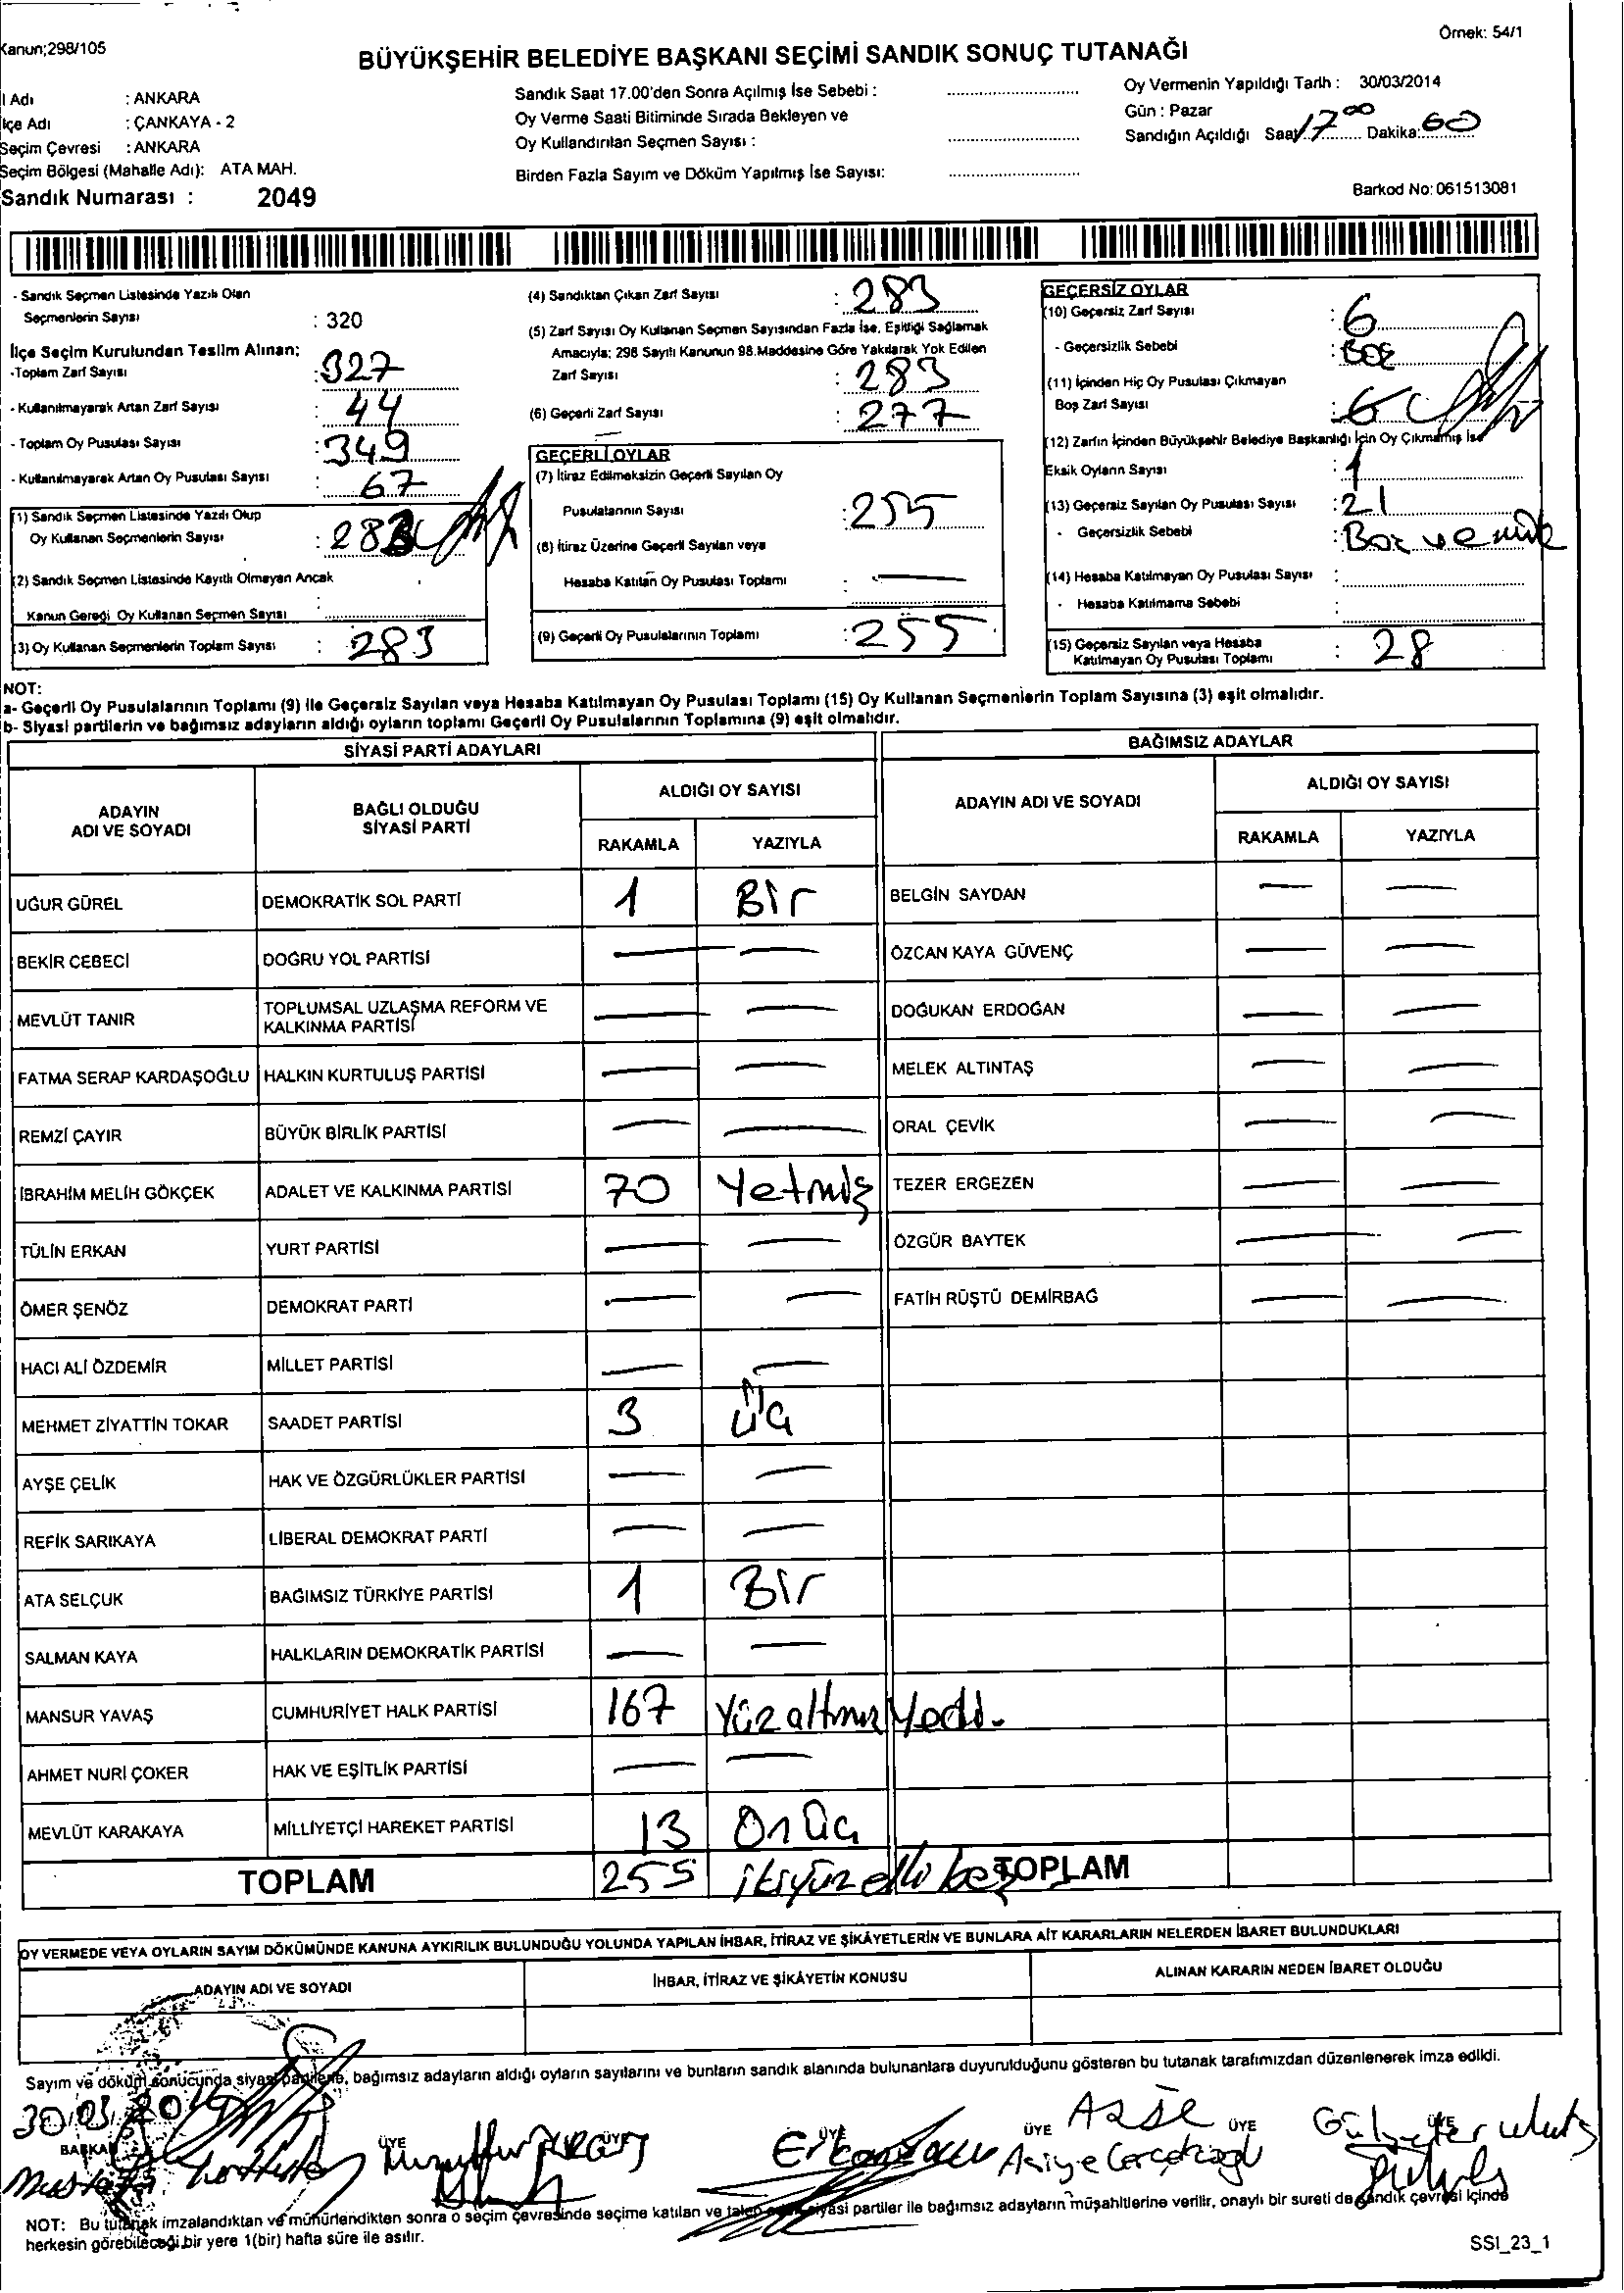 Kanun;298/105
Örnek: 54/1
BÜYÜKŞEHİR BELEDİYE BAŞKANI SEÇİMİ SANDIK SONUÇ TUTANAĞI
l Adı : ANKARA
lçe Adı : ÇANKAYA - 2
Seçim Çevresi : ANKARA
Seçim Bölgesi (Mahalle Adı): ATA MAH.
Sandık Numarası : 2049
Sandık Saat 17.00'den Sonra Açılmış İse Sebebi :
Oy Verme Saati Bitiminde Sırada Bekleyen ve
Oy Kullandırılan Seçmen Sayısı :
Birden Fazla Sayım ve Döküm Yapılmış İse Sayısı:
Oy Vermenin Yapıldığı Tarih : 30/03/2014
Gün : Pazar
Sandığın Açıldığı Saat 17 00 Dakika: 60
Barkod No: 061513081
- Sandık Seçmen Listesinde Yazılı Olan
Seçmenlerin Sayısı : 320
İlçe Seçim Kurulundan Teslim Alınan;
-Toplam Zarf Sayısı : 327
- Kullanılmayarak Artan Zarf Sayısı : 44
- Toplam Oy Pusulası Sayısı : 349
- Kullanılmayarak Artan Oy Pusulası Sayısı : 67
(1) Sandık Seçmen Listesinde Yazılı Olup
Oy Kullanan Seçmenlerin Sayısı : 283
(2) Sandık Seçmen Listesinde Kayıtlı Olmayan Ancak
Kanun Gereği Oy Kullanan Seçmen Sayısı :
(3) Oy Kullanan Seçmenlerin Toplam Sayısı : 283
(4) Sandıktan Çıkan Zarf Sayısı : 283
(5) Zarf Sayısı Oy Kullanan Seçmen Sayısından Fazla İse, Eşitliği Sağlamak
Amacıyla; 298 Sayılı Kanunun 98.Maddesine Göre Yakılarak Yok Edilen
Zarf Sayısı : 283
(6) Geçerli Zarf Sayısı : 277
GEÇERLİ OYLAR
(7) İtiraz Edilmeksizin Geçerli Sayılan Oy
Pusulalarının Sayısı : 255
(8) İtiraz Üzerine Geçerli Sayılan veya
Hesaba Katılan Oy Pusulası Toplamı : —
(9) Geçerli Oy Pusulalarının Toplamı : 255
GEÇERSİZ OYLAR
(10) Geçersiz Zarf Sayısı : 6
- Geçersizlik Sebebi : Boş
(11) İçinden Hiç Oy Pusulası Çıkmayan
Boş Zarf Sayısı : 6
(12) Zarfın İçinden Büyükşehir Belediye Başkanlığı İçin Oy Çıkmamış İse
Eksik Oyların Sayısı : 1
(13) Geçersiz Sayılan Oy Pusulası Sayısı : 21
- Geçersizlik Sebebi : Boş ve
(14) Hesaba Katılmayan Oy Pusulası Sayısı :
- Hesaba Katılmama Sebebi :
(15) Geçersiz Sayılan veya Hesaba
Katılmayan Oy Pusulası Toplamı : 28
NOT:
a- Geçerli Oy Pusulalarının Toplamı (9) ile Geçersiz Sayılan veya Hesaba Katılmayan Oy Pusulası Toplamı (15) Oy Kullanan Seçmenlerin Toplam Sayısına (3) eşit olmalıdır.
b- Siyasi partilerin ve bağımsız adayların aldığı oyların toplamı Geçerli Oy Pusulalarının Toplamına (9) eşit olmalıdır.
SİYASİ PARTİ ADAYLARI
BAĞIMSIZ ADAYLAR
ADAYIN ADI VE SOYADI
BAĞLI OLDUĞU SİYASİ PARTİ
ALDIĞI OY SAYISI
RAKAMLA YAZIYLA
ADAYIN ADI VE SOYADI
ALDIĞI OY SAYISI
RAKAMLA YAZIYLA
UĞUR GÜREL DEMOKRATİK SOL PARTİ 1 Bir BELGİN SAYDAN — —
BEKİR CEBECİ DOĞRU YOL PARTİSİ — — ÖZCAN KAYA GÜVENÇ — —
MEVLÜT TANIR TOPLUMSAL UZLAŞMA REFORM VE KALKINMA PARTİSİ — — DOĞUKAN ERDOĞAN — —
FATMA SERAP KARDAŞOĞLU HALKIN KURTULUŞ PARTİSİ — — MELEK ALTINTAŞ — —
REMZİ ÇAYIR BÜYÜK BİRLİK PARTİSİ — — ORAL ÇEVİK — —
İBRAHİM MELİH GÖKÇEK ADALET VE KALKINMA PARTİSİ 70 Yetmiş TEZER ERGEZEN — —
TÜLİN ERKAN YURT PARTİSİ — — ÖZGÜR BAYTEK — —
ÖMER ŞENÖZ DEMOKRAT PARTİ — — FATİH RÜŞTÜ DEMİRBAĞ — —
HACI ALİ ÖZDEMİR MİLLET PARTİSİ — —
MEHMET ZİYATTİN TOKAR SAADET PARTİSİ 3 Üç
AYŞE ÇELİK HAK VE ÖZGÜRLÜKLER PARTİSİ — —
REFİK SARIKAYA LİBERAL DEMOKRAT PARTİ — —
ATA SELÇUK BAĞIMSIZ TÜRKİYE PARTİSİ 1 Bir
SALMAN KAYA HALKLARIN DEMOKRATİK PARTİSİ — —
MANSUR YAVAŞ CUMHURİYET HALK PARTİSİ 167 Yüzaltmışyedi.
AHMET NURİ ÇOKER HAK VE EŞİTLİK PARTİSİ — —
MEVLÜT KARAKAYA MİLLİYETÇİ HAREKET PARTİSİ 13 Onüç
TOPLAM 255 ikiyüz elli beş TOPLAM
OY VERMEDE VEYA OYLARIN SAYIM DÖKÜMÜNDE KANUNA AYKIRILIK BULUNDUĞU YOLUNDA YAPILAN İHBAR, İTİRAZ VE ŞİKÂYETLERİN VE BUNLARA AİT KARARLARIN NELERDEN İBARET BULUNDUKLARI
ADAYIN ADI VE SOYADI İHBAR, İTİRAZ VE ŞİKÂYETİN KONUSU ALINAN KARARIN NEDEN İBARET OLDUĞU
Sayım ve döküm sonucunda siyasi partilerin, bağımsız adayların aldığı oyların sayılarını ve bunların sandık alanında bulunanlara duyurulduğunu gösteren bu tutanak tarafımızdan düzenlenerek imza edildi.
30.03.2014
BAŞKAN ÜYE ÜYE ÜYE ÜYE ÜYE ÜYE
Mustafa Asiye
NOT: Bu tutanak imzalandıktan ve mühürlendikten sonra o seçim çevresinde seçime katılan ve talep eden siyasi partiler ile bağımsız adayların müşahitlerine verilir, onaylı bir sureti de sandık çevresi içinde
herkesin görebileceği bir yere 1(bir) hafta süre ile asılır.
SSI_23_1